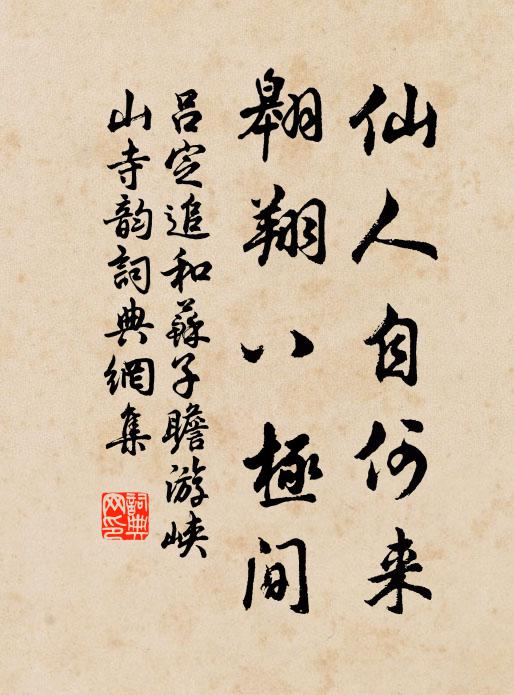 仙人自何来
翱翔八極间
吕定追和蘇子瞻游峡
山寺韵詞典網集
詞典
网印